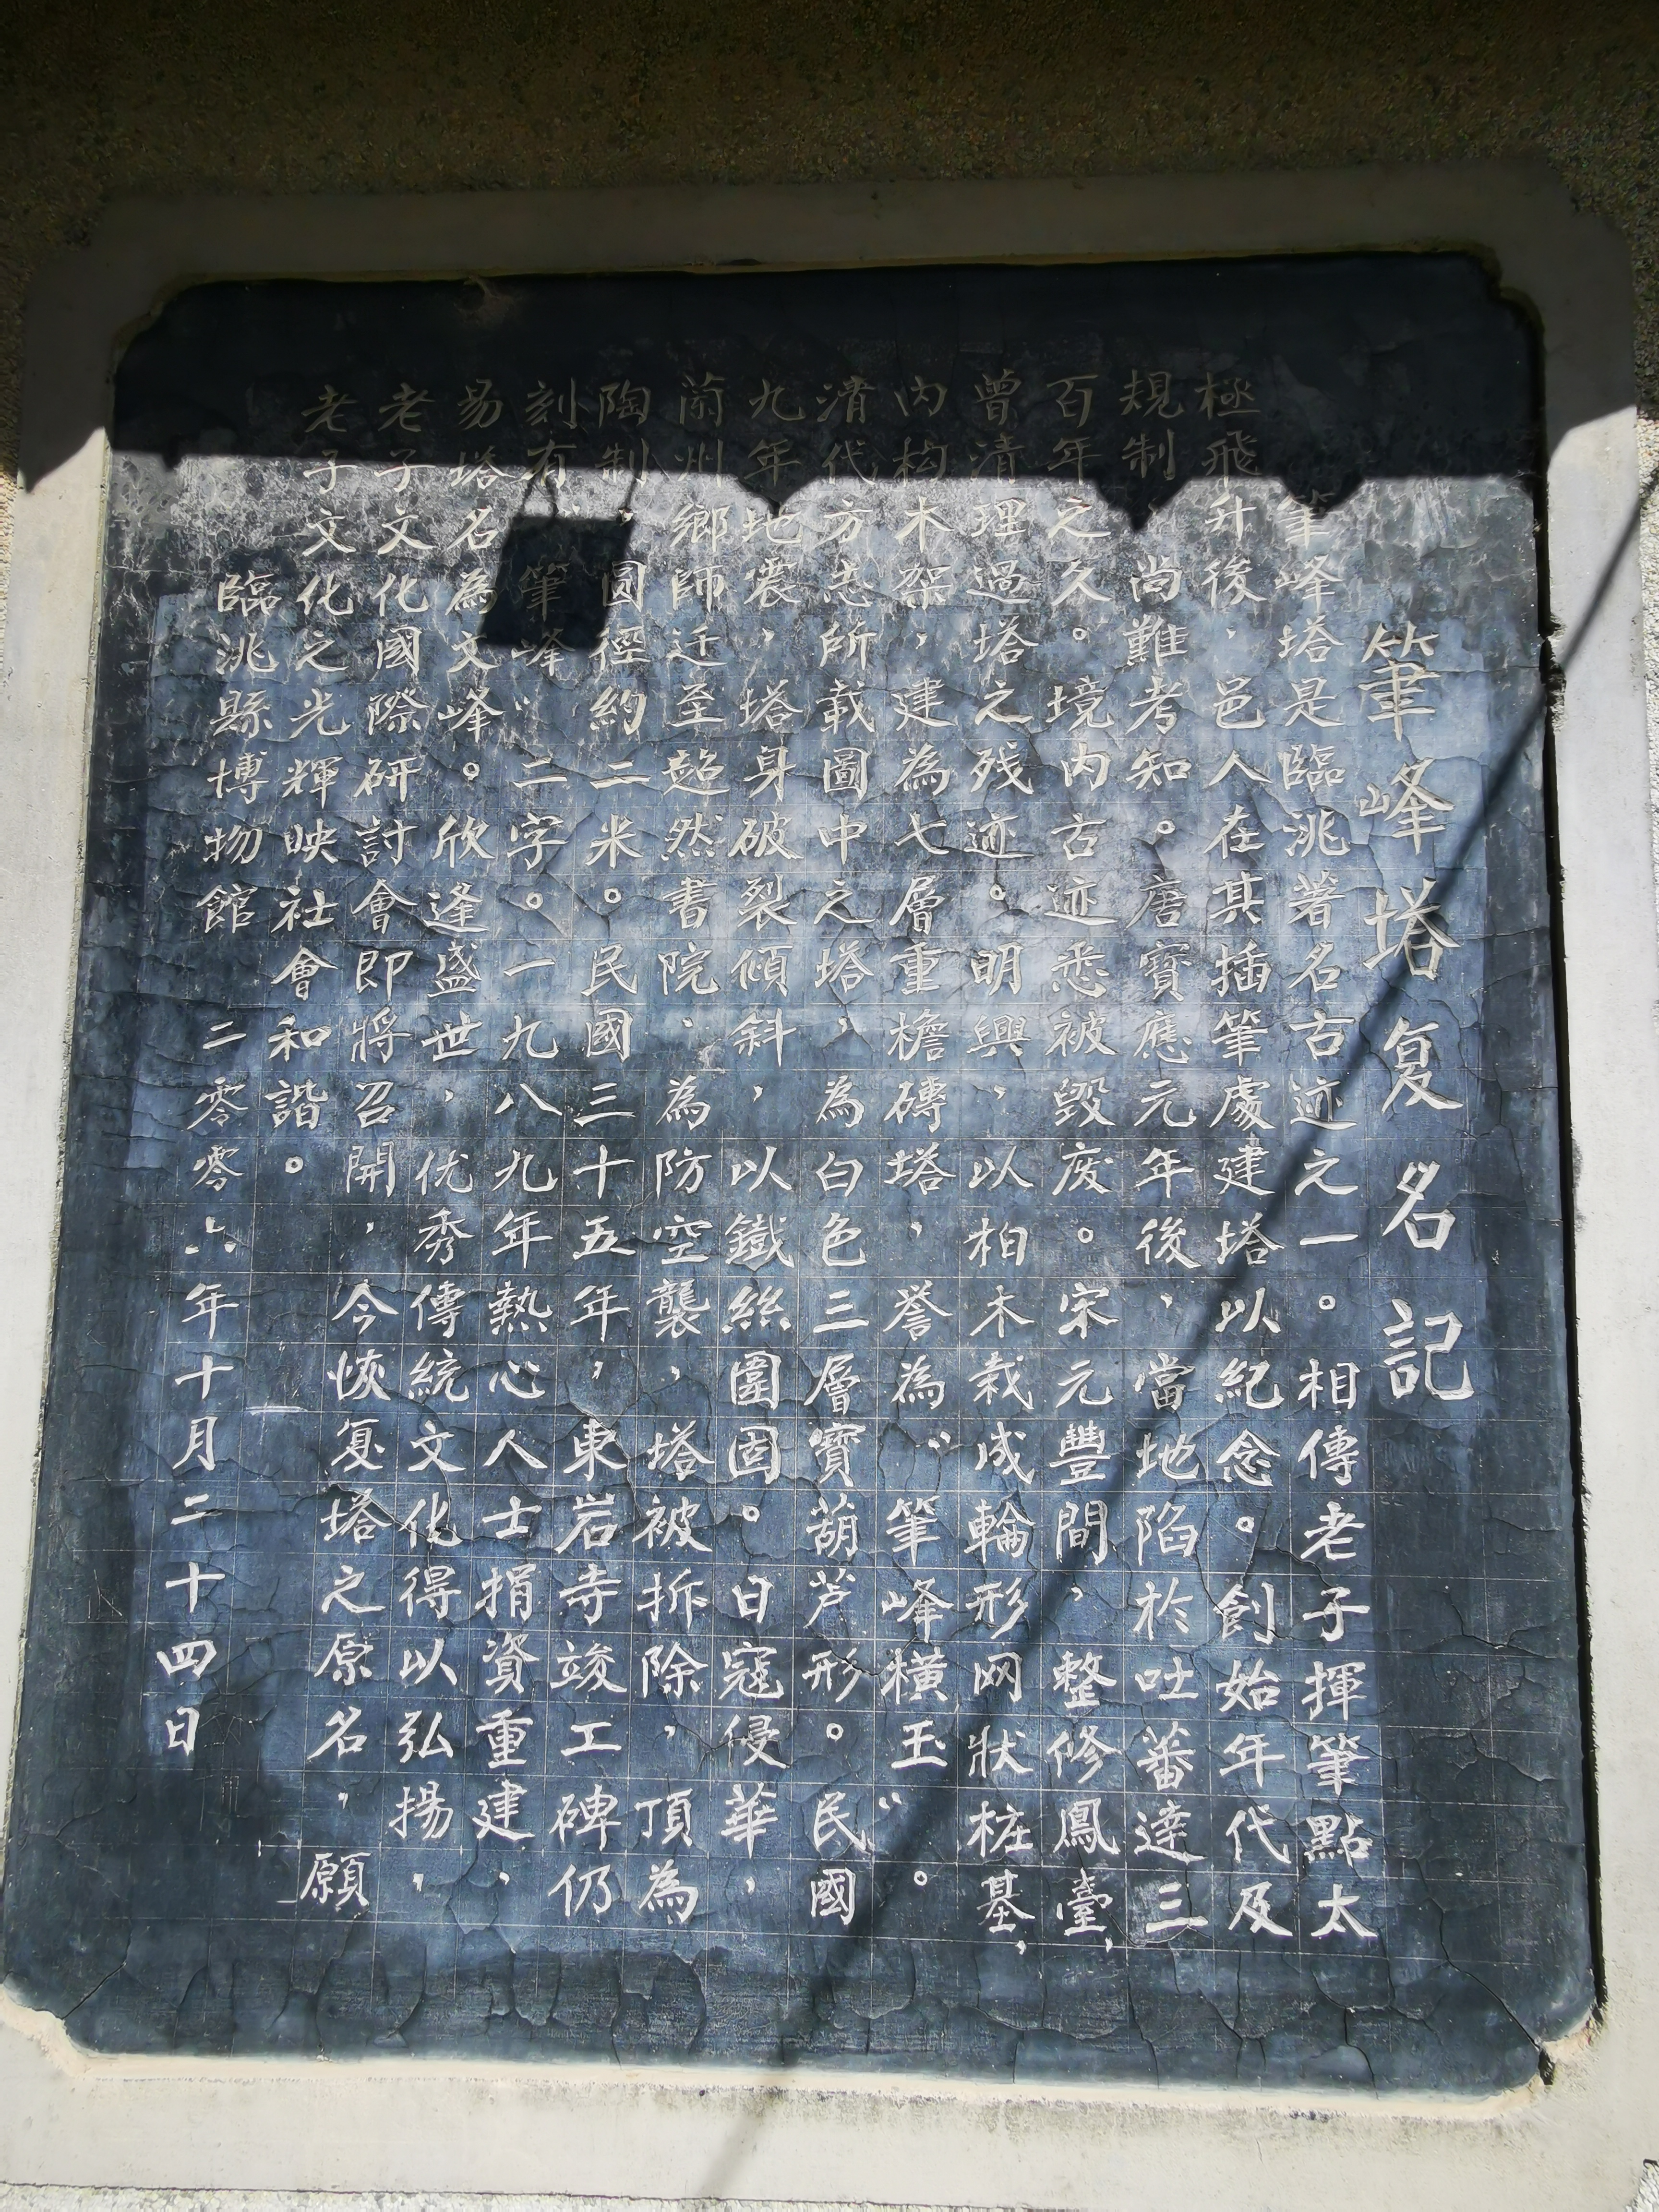 筆峰塔复名記
筆峰塔是臨洮著名古迹之一。相傳老子揮筆點太
極飛升後，邑人在其插筆處建塔以紀念。創始年代及
規制，尚難考知。唐寶應元年後，當地陷於吐蕃達三
百年之久。境内古迹悉被毁废。宋元豐間，整修鳳臺，
曾清理過塔之残迹。明興，以柏木栽成輪形网狀桩基，
内构木架，建為七層重檐磚塔，誉為“筆峰橫玉”。
清代方志所載圖中之塔，為白色三層寶葫芦形。民國
九年地震，塔身破裂傾斜，以鐵絲圍固。日寇侵華，
蘭州鄉師迁至超然書院，為防空襲，塔被拆除，頂為
陶制，圆徑約二米。民國三十五年，東岩寺竣工碑仍
刻有“筆峰”二字。一九八九年熱心人士捐資重建，
易塔名為文峰。欣逢盛世，优秀傳統文化得以弘揚，
老子文化國際研討會即將召開，今恢复塔之原名，願
老子文化之光輝映社會和諧。
臨洮縣博物館　二零零六年十月二十四日